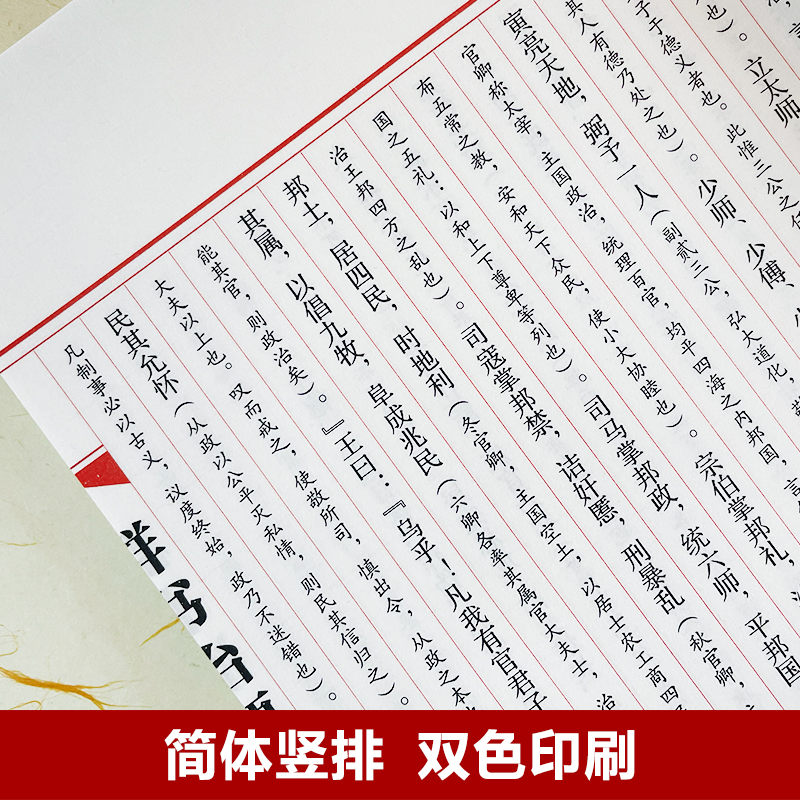 也）。立太师
子于德义者也。此惟三公之
其人有德乃处之也）。少师、少傅、
寅亮天地，弼予一人（副贰三公，弘大道化，
官卿称太宰，主国政治，统理百官，均平四海之内邦国，言
布五常之教，安和天下众民，使小大协睦也）。宗伯掌邦礼，治
国之五礼：以和上下尊卑等列也）。司马掌邦政，统六师，平邦国
治王邦四方之乱也）。司寇掌邦禁，诘奸慝，刑暴乱（秋官卿，
邦土，居四民，时地利（冬官卿，主国空土，以居士农工商四
其属，以倡九牧，阜成兆民（六卿各率其属官大夫士，治
能其官，则政治矣）。』王曰：『乌乎！凡我有官君子
大夫以上也。叹而戒之，使敬所司，慎出令，从政之本
民其允怀（从政以公平灭私情，则民其信归之）。
凡制事必以古义，议度终始，政乃不迷错也）。
群书治
简体竖排 双色印刷